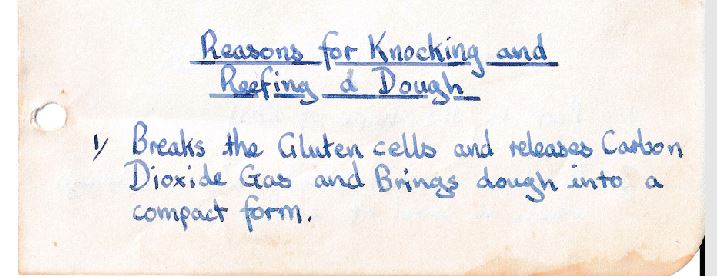 Reasons for Knocking and
Reefing d Dough
1/ Breaks the Gluten cells and releases Carbon
Dioxide Gas and Brings dough into a
compact form.